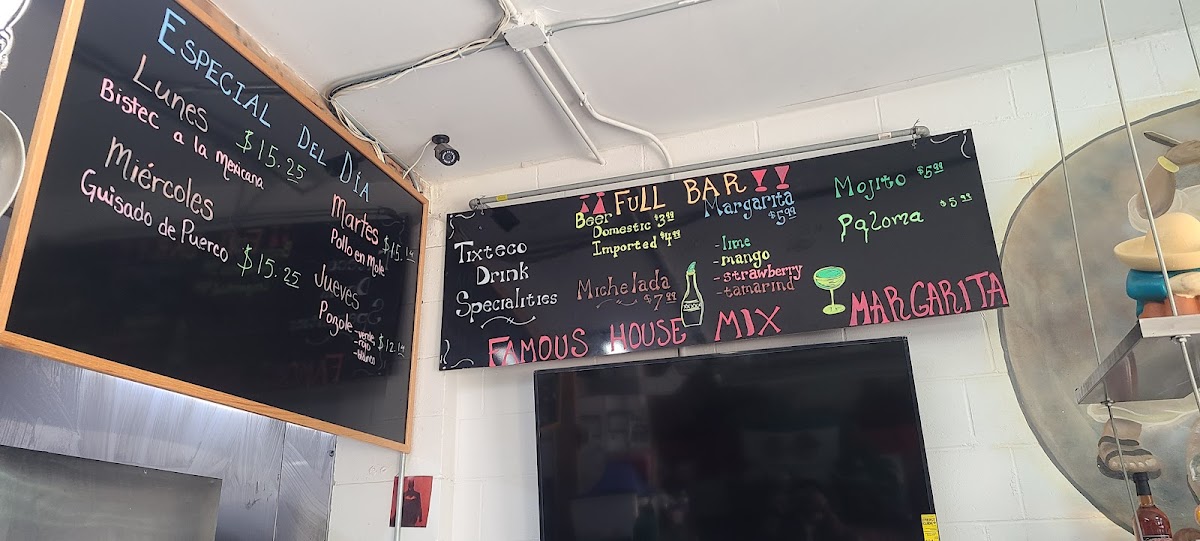 ESPECIAL DEL DÍA
Lunes
Bistec a la mexicana
$15.25
Miércoles
Guisado de Puerco
$15.25
Martes
Pollo en Mole
Jueves
Pozole
-verde
-rojo
-blanco
¡¡FULL BAR!!
Tixteco
Drink
Specialities
Beer
Domestic $3.99
Imported $4.99
Michelada
$7.99
Margarita
$5.99
-lime
-mango
-strawberry
-tamarind
Mojito $5.99
Paloma $5.99
FAMOUS HOUSE MIX MARGARITA